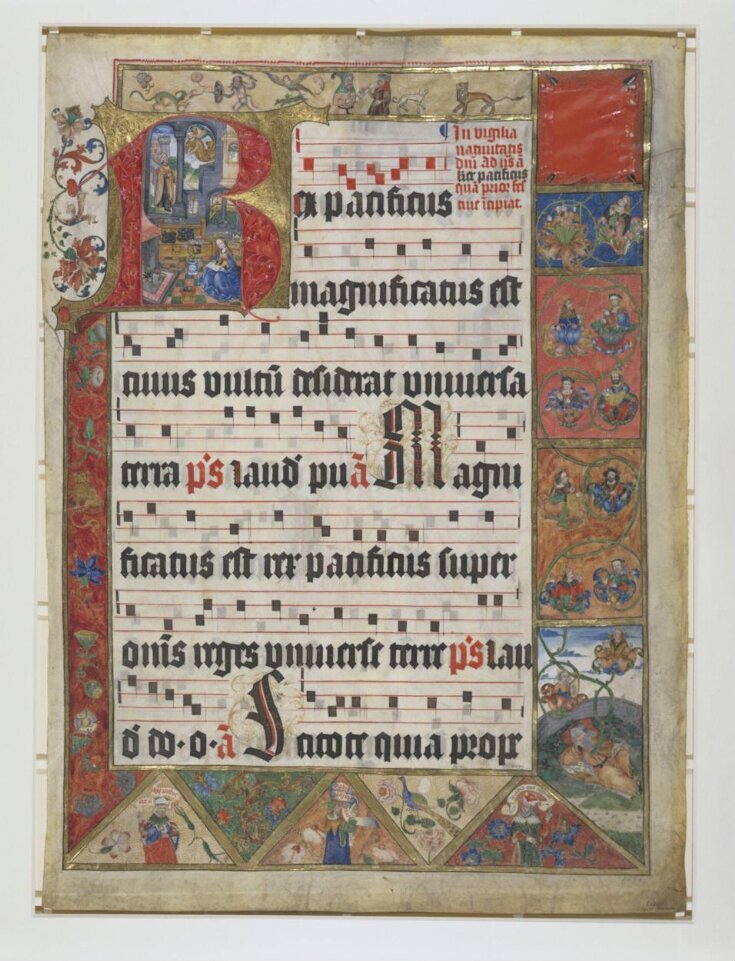 In vigilia
natiuitatis
dñi ad vp̃s ã
Rex pacificus
qua prior fel
tiue īcipiat.
Rex pacificus
magnificatus est
cuius vultū desiderat vniuersa
terra p̄s laud puã Magni
ficatus est rex pacificus super
om̄is reges vniuerse terre p̄s lau
d do·o·ã Scitote quia prope